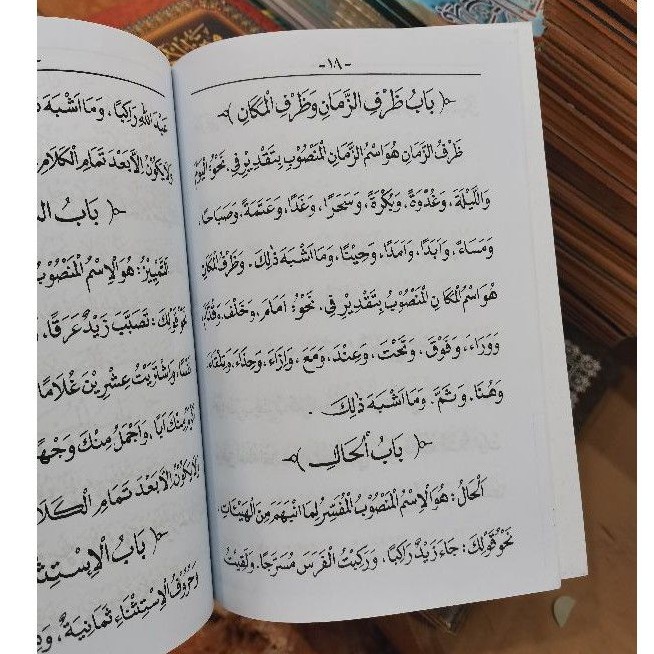 -١٨-
﴿ بَابُ ظَرْفِ الزَّمَانِ وَظَرْفِ الْمَكَانِ ﴾
ظَرْفُ الزَّمَانِ هُوَ اسْمُ الزَّمَانِ الْمَنْصُوْبُ بِتَقْدِيْرِ فِي. نَحْوُ: الْيَوْمَ
وَاللَّيْلَةَ، وَغُدْوَةً. وَبُكْرَةً، وَسَحَرًا، وَغَدًا، وَعَتَمَةً، وَصَبَاحًا،
وَمَسَاءً، وَاَبَدًا، وَاَمَدًا، وَحِيْنًا، وَمَا اَشْبَهَ ذٰلِكَ. وَظَرْفُ الْمَكَانِ
هُوَ اسْمُ الْمَكَانِ الْمَنْصُوْبُ بِتَقْدِيْرِ فِي. نَحْوُ: اَمَامَ، وَخَلْفَ، وَقُدَّامَ
وَوَرَاءَ، وَفَوْقَ، وَتَحْتَ، وَعِنْدَ، وَمَعَ، وَاِزَاءَ، وَحِذَاءَ، وَتِلْقَاءَ،
وَهُنَا. وَثَمَّ. وَمَا اَشْبَهَ ذٰلِكَ.
﴿ بَابُ الْحَالِ ﴾
اَلْحَالُ: هُوَ الْاِسْمُ الْمَنْصُوْبُ الْمُفَسِّرُ لِمَا انْبَهَمَ مِنَ الْهَيْئَاتِ
نَحْوُ قَوْلِكَ: جَاءَ زَيْدٌ رَاكِبًا، وَرَكِبْتُ الْفَرَسَ مُسَرَّجًا. وَلَقِيْتُ
عَبْدَ اللّٰهِ رَاكِبًا، وَمَا اَشْبَهَ
وَلَا يَكُوْنُ اِلَّا بَعْدَ تَمَامِ الْكَلَامِ
﴿ بَابُ
اَلتَّمْيِيْزُ: هُوَ الْاِسْمُ الْمَنْصُوْبُ
نَحْوُ قَوْلِكَ: تَصَبَّبَ زَيْدٌ عَرَقًا،
نَفْسًا، وَاشْتَرَيْتُ عِشْرِيْنَ غُلَامًا
مِنْكَ اَبًا، وَاَجْمَلُ مِنْكَ وَجْهًا
وَلَا يَكُوْنُ اِلَّا بَعْدَ تَمَامِ الْكَلَا
﴿ بَابُ الْاِسْتِثْنَا
وَحُرُوْفُ الْاِسْتِثْنَاءِ ثَمَانِيَةٌ،